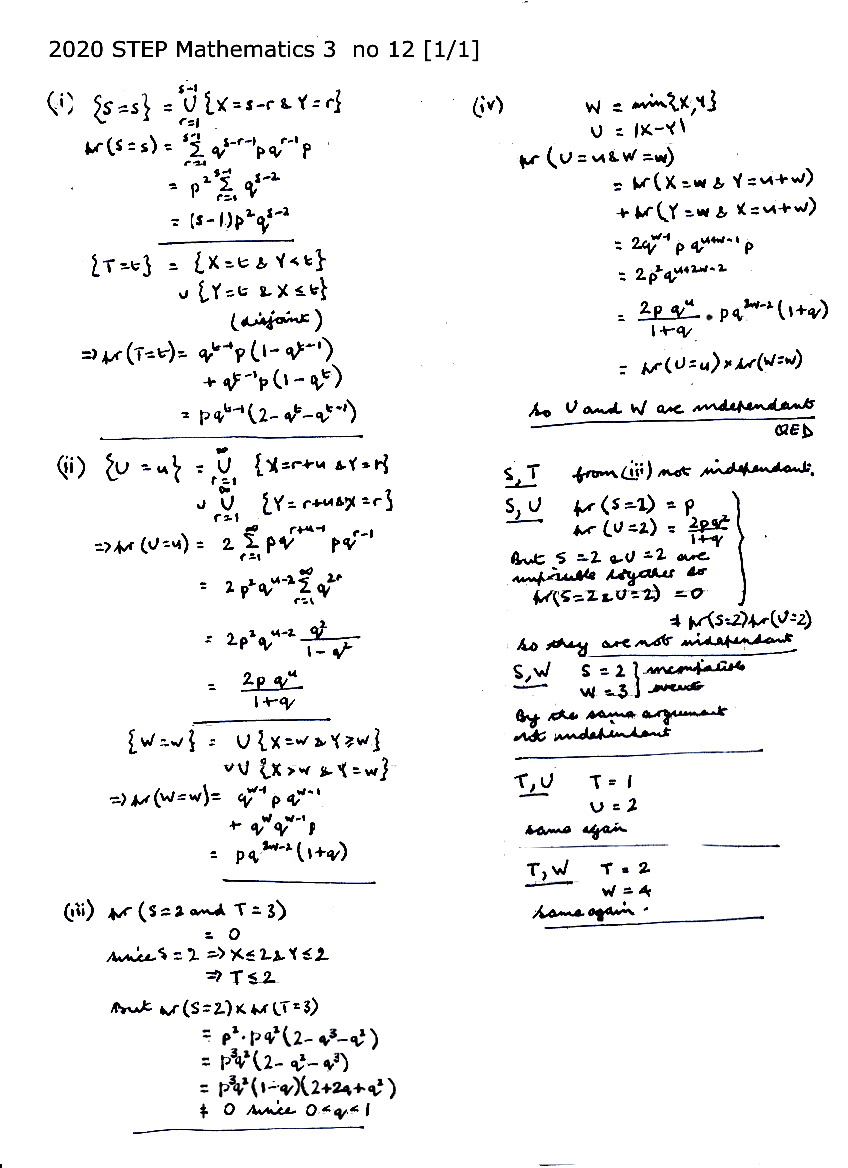 2020 STEP Mathematics 3 no 12 [1/1]
(i) {S=s} = ∪_{r=1}^{s-1} {X=s-r & Y=r}
pr(S=s) = Σ_{r=1}^{s-1} q^{s-r-1} p q^{r-1} p
= p² Σ_{r=1}^{s-1} q^{s-2}
= (s-1)p²q^{s-2}
{T=t} = {X=t & Y<t}
∪ {Y=t & X≤t}
(disjoint)
⇒ pr(T=t) = q^{t-1}p(1-q^{t-1})
+ q^{t-1}p(1-q^t)
= pq^{t-1}(2-q^t-q^{t-1})
(ii) {U=u} = ∪_{r=1}^{∞} {X=r+u & Y=r}
∪ ∪_{r=1}^{∞} {Y=r+u & X=r}
⇒ pr(U=u) = 2 Σ_{r=1}^{∞} pq^{r+u-1} pq^{r-1}
= 2p²q^{u-2} Σ_{r=1}^{∞} q^{2r}
= 2p²q^{u-2} q²/(1-q²)
= 2pq^u/(1+q)
{W=w} = ∪{X=w & Y≥w}
∪∪{X>w & Y=w}
⇒ pr(W=w) = q^{w-1} p q^{w-1}
+ q^w q^{w-1} p
= pq^{2w-2}(1+q)
(iii) pr(S=2 and T=3)
= 0
since S=2 ⇒ X≤2 & Y≤2
⇒ T≤2
But pr(S=2)×pr(T=3)
= p².pq²(2-q³-q²)
= p³q²(2-q²-q³)
= p³q²(1-q)(2+2q+q²)
≠ 0 since 0<q<1
(iv) W = min{X,Y}
U = |X-Y|
pr(U=u & W=w)
= pr(X=w & Y=u+w)
+ pr(Y=w & X=u+w)
= 2q^{w-1} p q^{u+w-1} p
= 2p²q^{u+2w-2}
= 2pq^u/(1+q) . pq^{2w-2}(1+q)
= pr(U=u)×pr(W=w)
So U and W are independent
QED
S,T from (iii) not independent.
S,U pr(S=2) = p
pr(U=2) = 2pq²/(1+q)
But S=2 & U=2 are
impossible together so
pr(S=2 & U=2) = 0
≠ pr(S=2)pr(U=2)
So they are not independent
S,W S=2 } incompatible
W=3 } events
By the same argument
not independent
T,U T=1
U=2
same again
T,W T=2
W=4
same again.